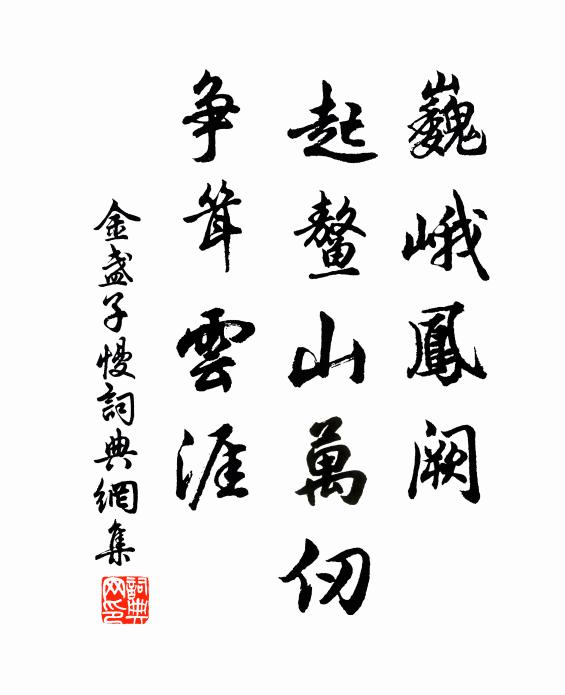 巍峨鳳闕
起鰲山萬仞
争聳雲涯
金盞子慢詞典網集
詞典网印